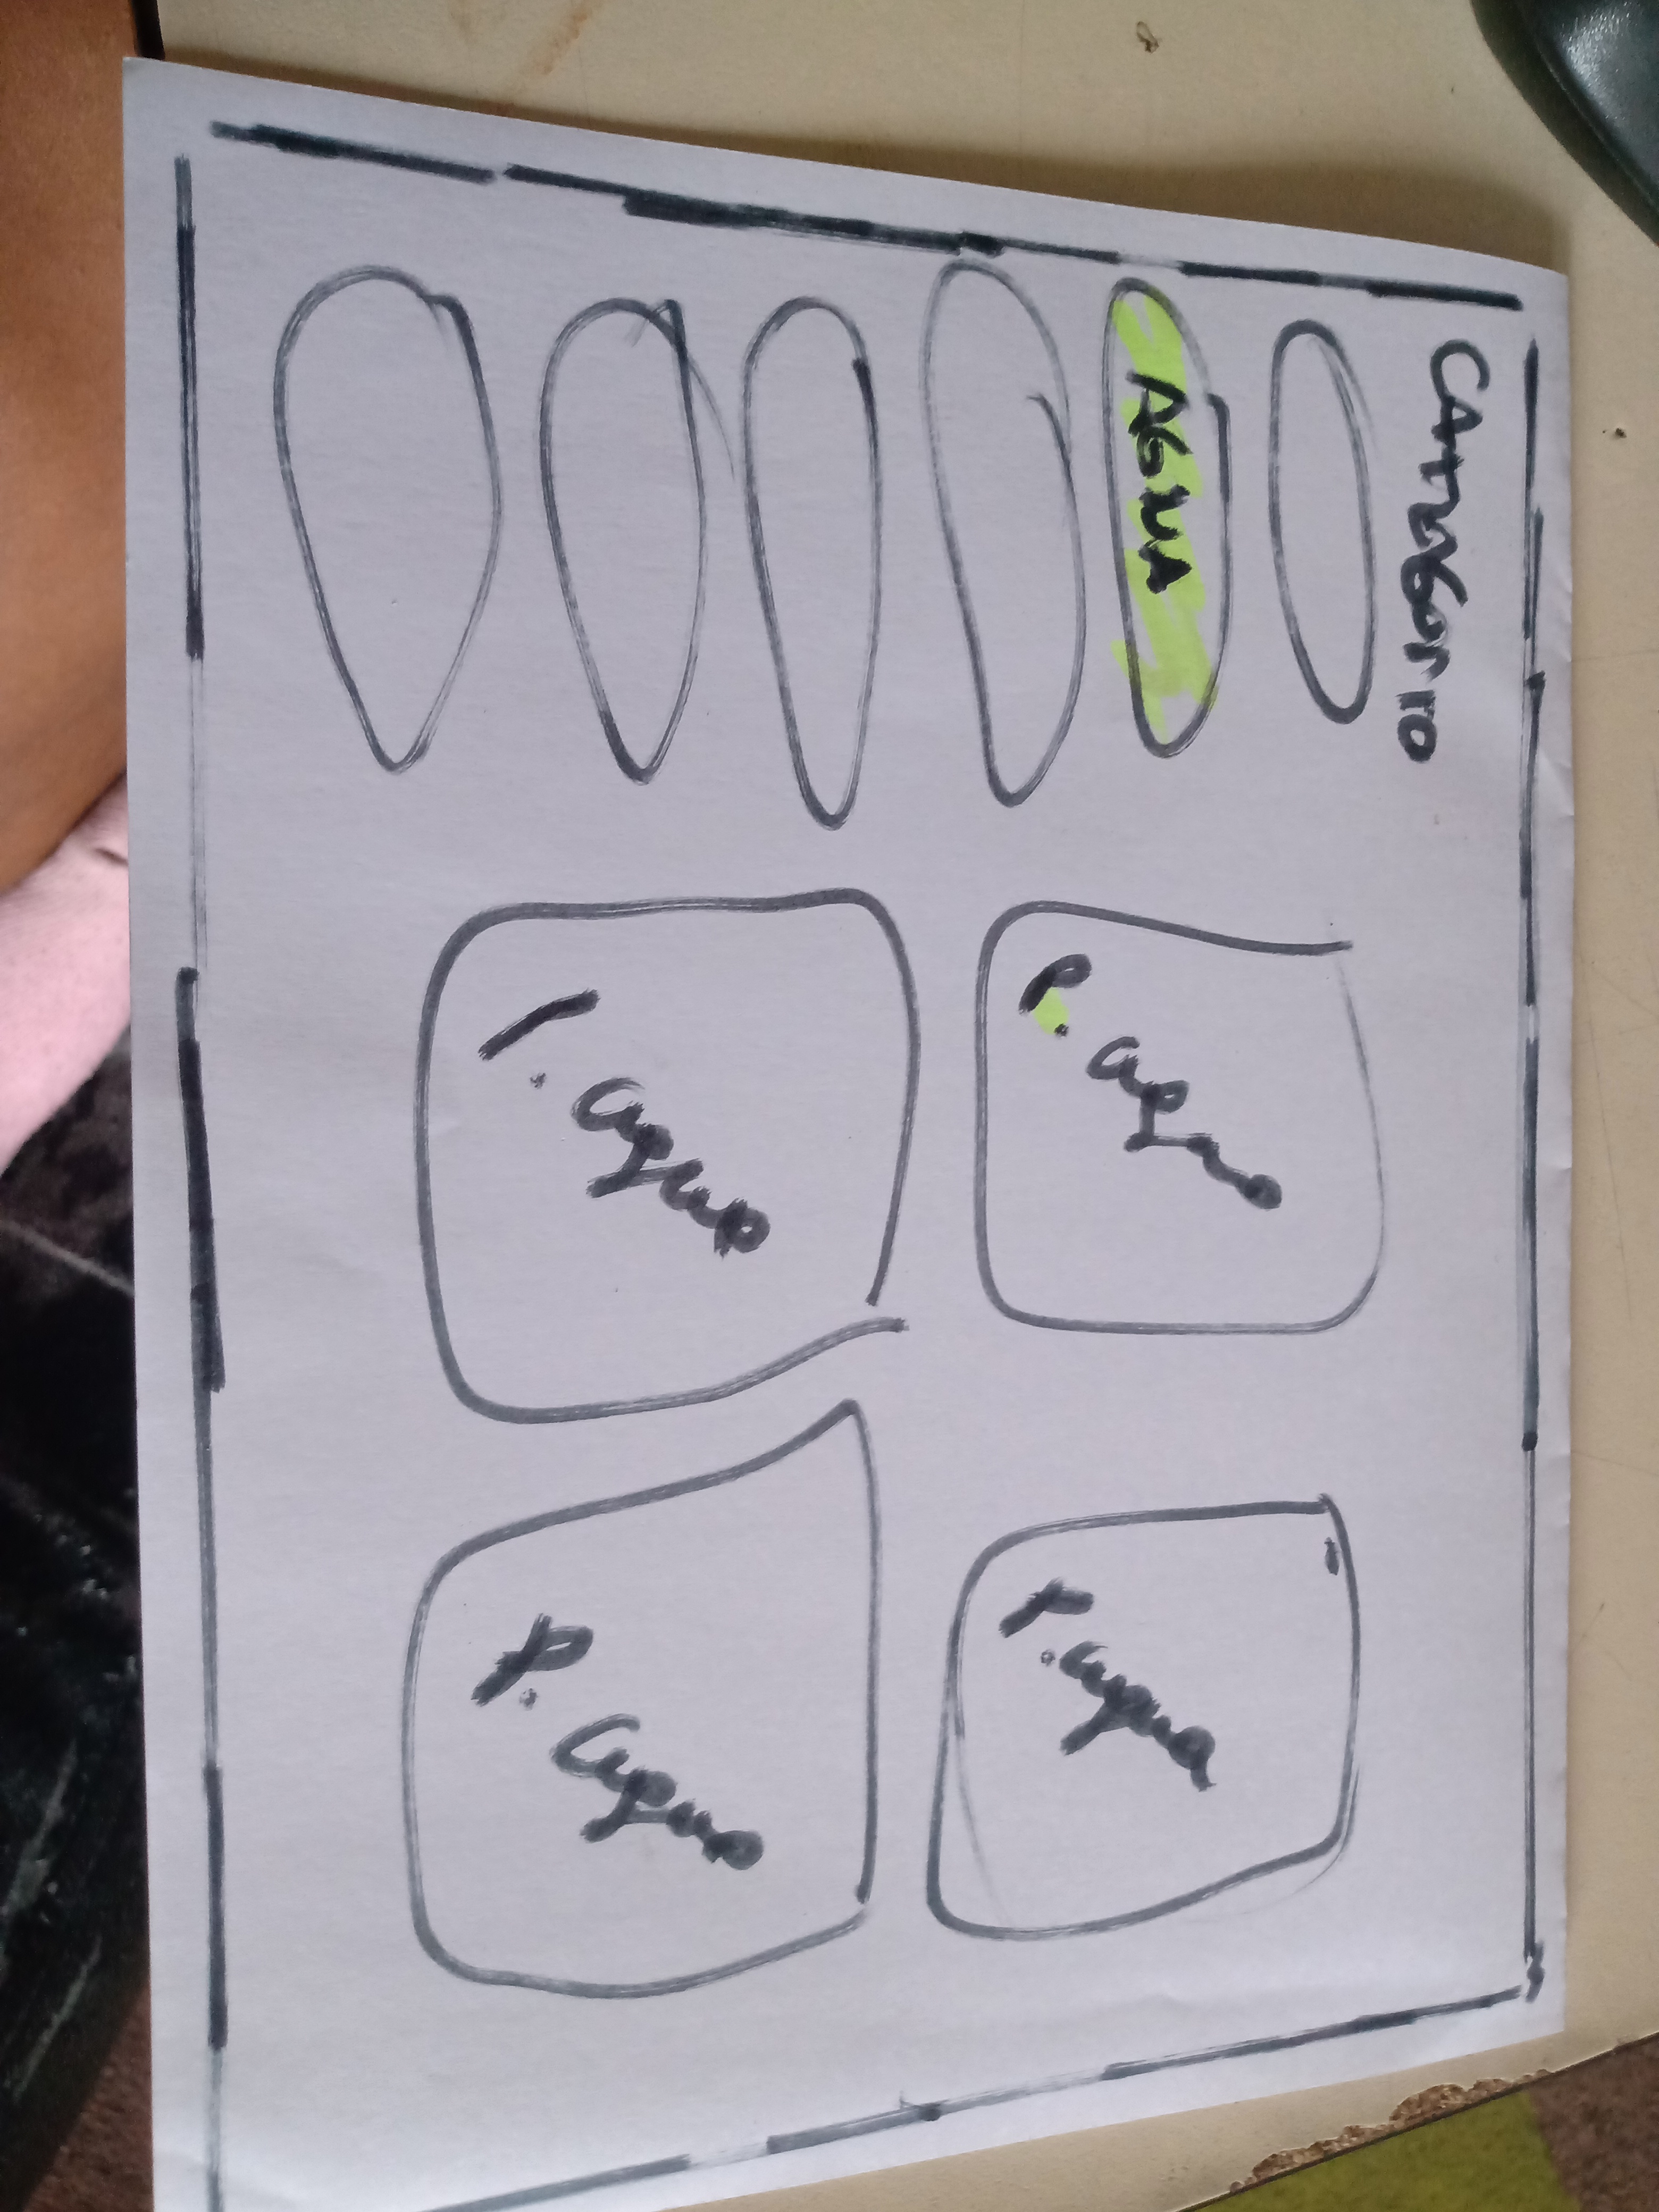 CATEGORIO
AGUA
P. agua
P. agua
P. agua
P. agua